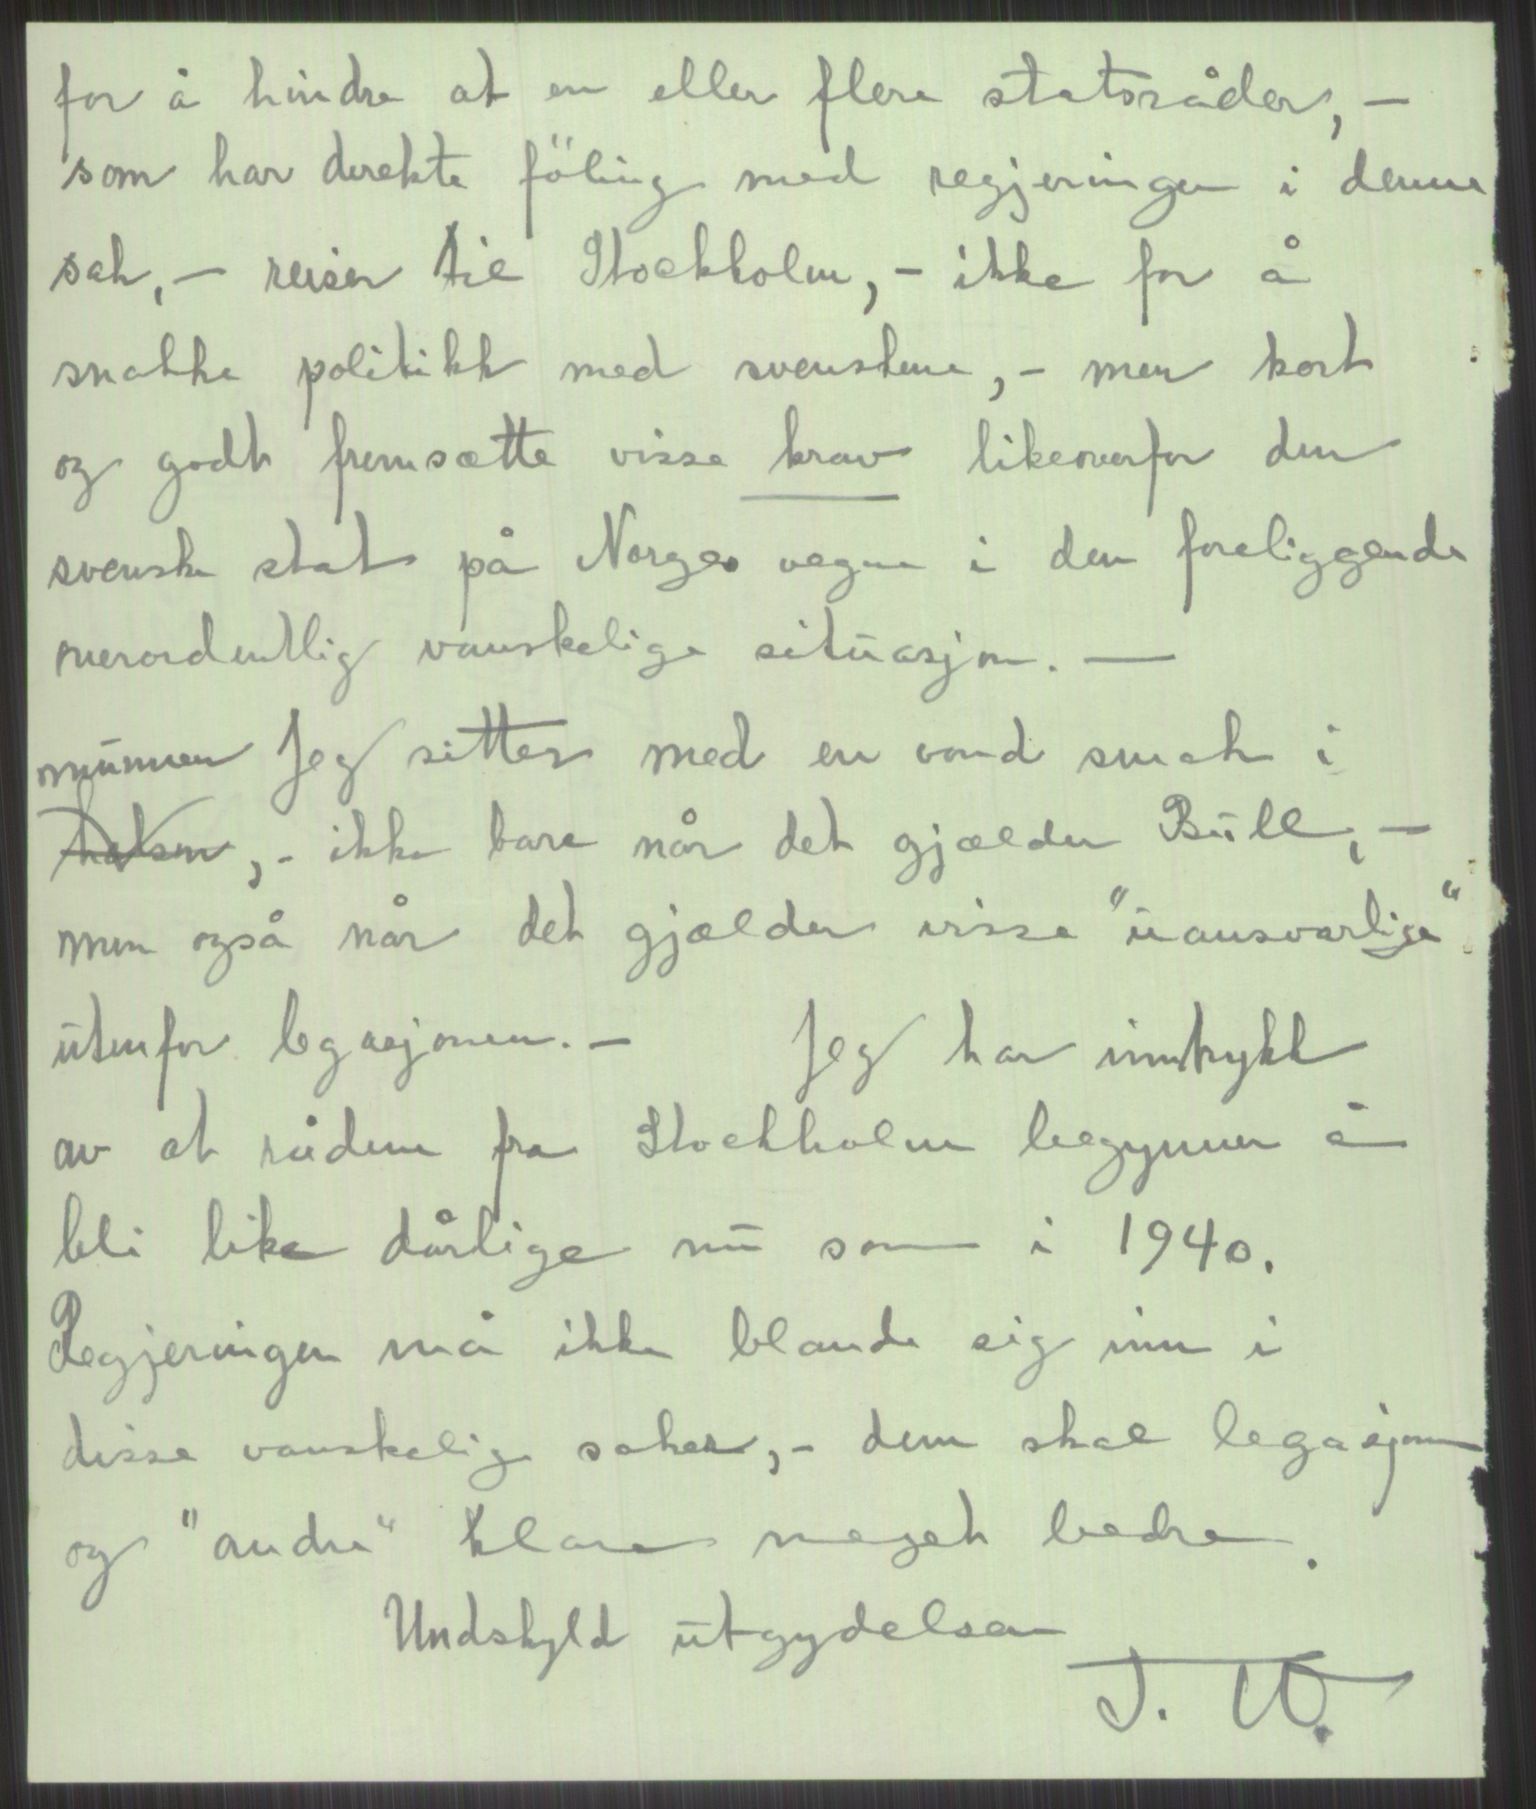 for å hindre at en eller flere statsråder, –
som har direkte föling med regjeringen i denne
sak, – reiser til Stockholm, – ikke for å
snakke politikk med svenskene, – men kort
og godt fremsætte visse krav likeoverfor den
svenske stat på Norges vegne i den foreliggende
overordentlig vanskelige situasjon. —
munnen Jeg sitter med en vond smak i
halsen, – ikke bare når det gjælder Bull, –
men også når det gjælder visse "uansvarlige"
utenfor legasjonen. – Jeg har inntrykk
av at rådene fra Stockholm begynner å
bli like dårlige nu som i 1940.
Regjeringen må ikke blande sig inn i
disse vanskelige saker, – dem skal legasjonen
og "andre" klare meget bedre.
Undskyld utgydelsen
J. W.